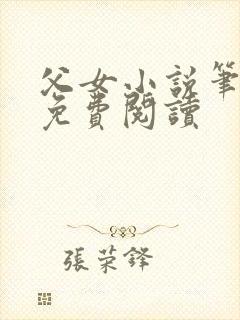 父女小説筆
免費閱讀
張荣鋒